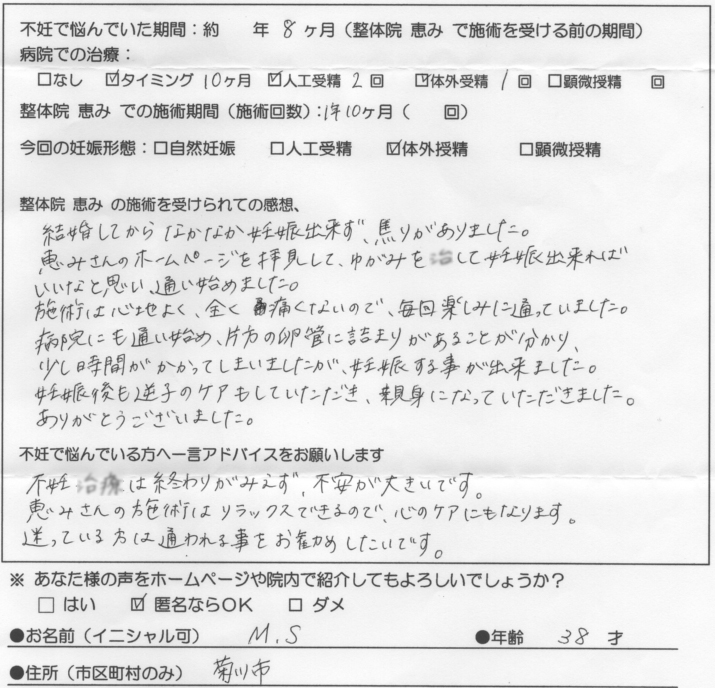 不妊で悩んでいた期間：約　年 8 ヶ月（整体院 恵み で施術を受ける前の期間）
病院での治療：
□なし ☑タイミング 10ヶ月 ☑人工受精 2 回 ☑体外受精 1 回 □顕微授精 回
整体院 恵み での施術期間（施術回数）：1年10ヶ月（　回）
今回の妊娠形態：□自然妊娠 □人工受精 ☑体外授精 □顕微授精
整体院 恵み の施術を受けられての感想、
結婚してからなかなか妊娠出来ず、焦りがありました。
恵みさんのホームページを拝見して、ゆがみを治して妊娠出来れば
いいなと思い、通い始めました。
施術は心地よく、全く痛くないので、毎回楽しみに通っていました。
病院にも通い始め、片方の卵管に詰まりがあることが分かり、
少し時間がかかってしまいましたが、妊娠する事が出来ました。
妊娠後も逆子のケアもしていただき、親身になっていただきました。
ありがとうございました。
不妊で悩んでいる方へ一言アドバイスをお願いします
不妊治療は終わりがみえず、不安が大きいです。
恵みさんの施術はリラックスできるので、心のケアにもなります。
迷っている方は通われる事をお勧めしたいです。
※ あなた様の声をホームページや院内で紹介してもよろしいでしょうか？
□ はい ☑ 匿名ならOK □ ダメ
●お名前（イニシャル可） M.S ●年齢 38 才
●住所（市区町村のみ） 菊川市